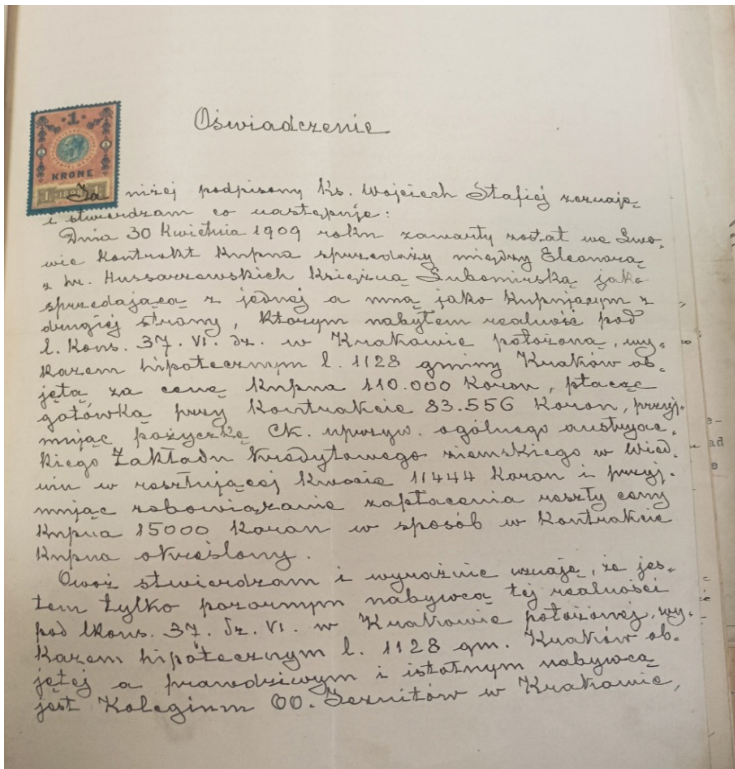 Oświadczenie
1
KRONE
Ja niżej podpisany Ks. Wojciech Stafiej zeznaję
i stwierdzam co następuje:
Dnia 30 Kwietnia 1909 roku zawarty został we Lwo-
wie Kontrakt Kupna sprzedaży między Eleonorą
z hr. Hussarzewskich Księżną Lubomirską jako
sprzedającą z jednej a mną jako kupującym z
drugiej strony, którym nabyłem realność pod
l. Kons. 37. VI. Dz. w Krakowie położoną, wy-
kazem hipotecznym l. 1128 gminy Kraków ob-
jętą za cenę Kupna 110.000 Koron, płacąc
gotówką przy Kontrakcie 83.556 Koron, przyj-
mując pożyczkę Ck. uprzyw. ogólnego austryac-
kiego Zakładu Kredytowego ziemskiego w Wied-
niu w resztującej Kwocie 11444 Koron i przyj-
mując zobowiązanie zapłacenia reszty ceny
Kupna 15000 Koron w sposób w Kontrakcie
Kupna określony.
Owoż stwierdzam i wyraźnie uznaję, że jes-
tem tylko pozornym nabywcą tej realności
pod lkons. 37. Dz. VI. w Krakowie położonej, wy-
kazem hipotecznym l. 1128 gm. Kraków ob-
jętej a prawdziwym i istotnym nabywcą
jest Kolegium OO. Jezuitów w Krakowie,